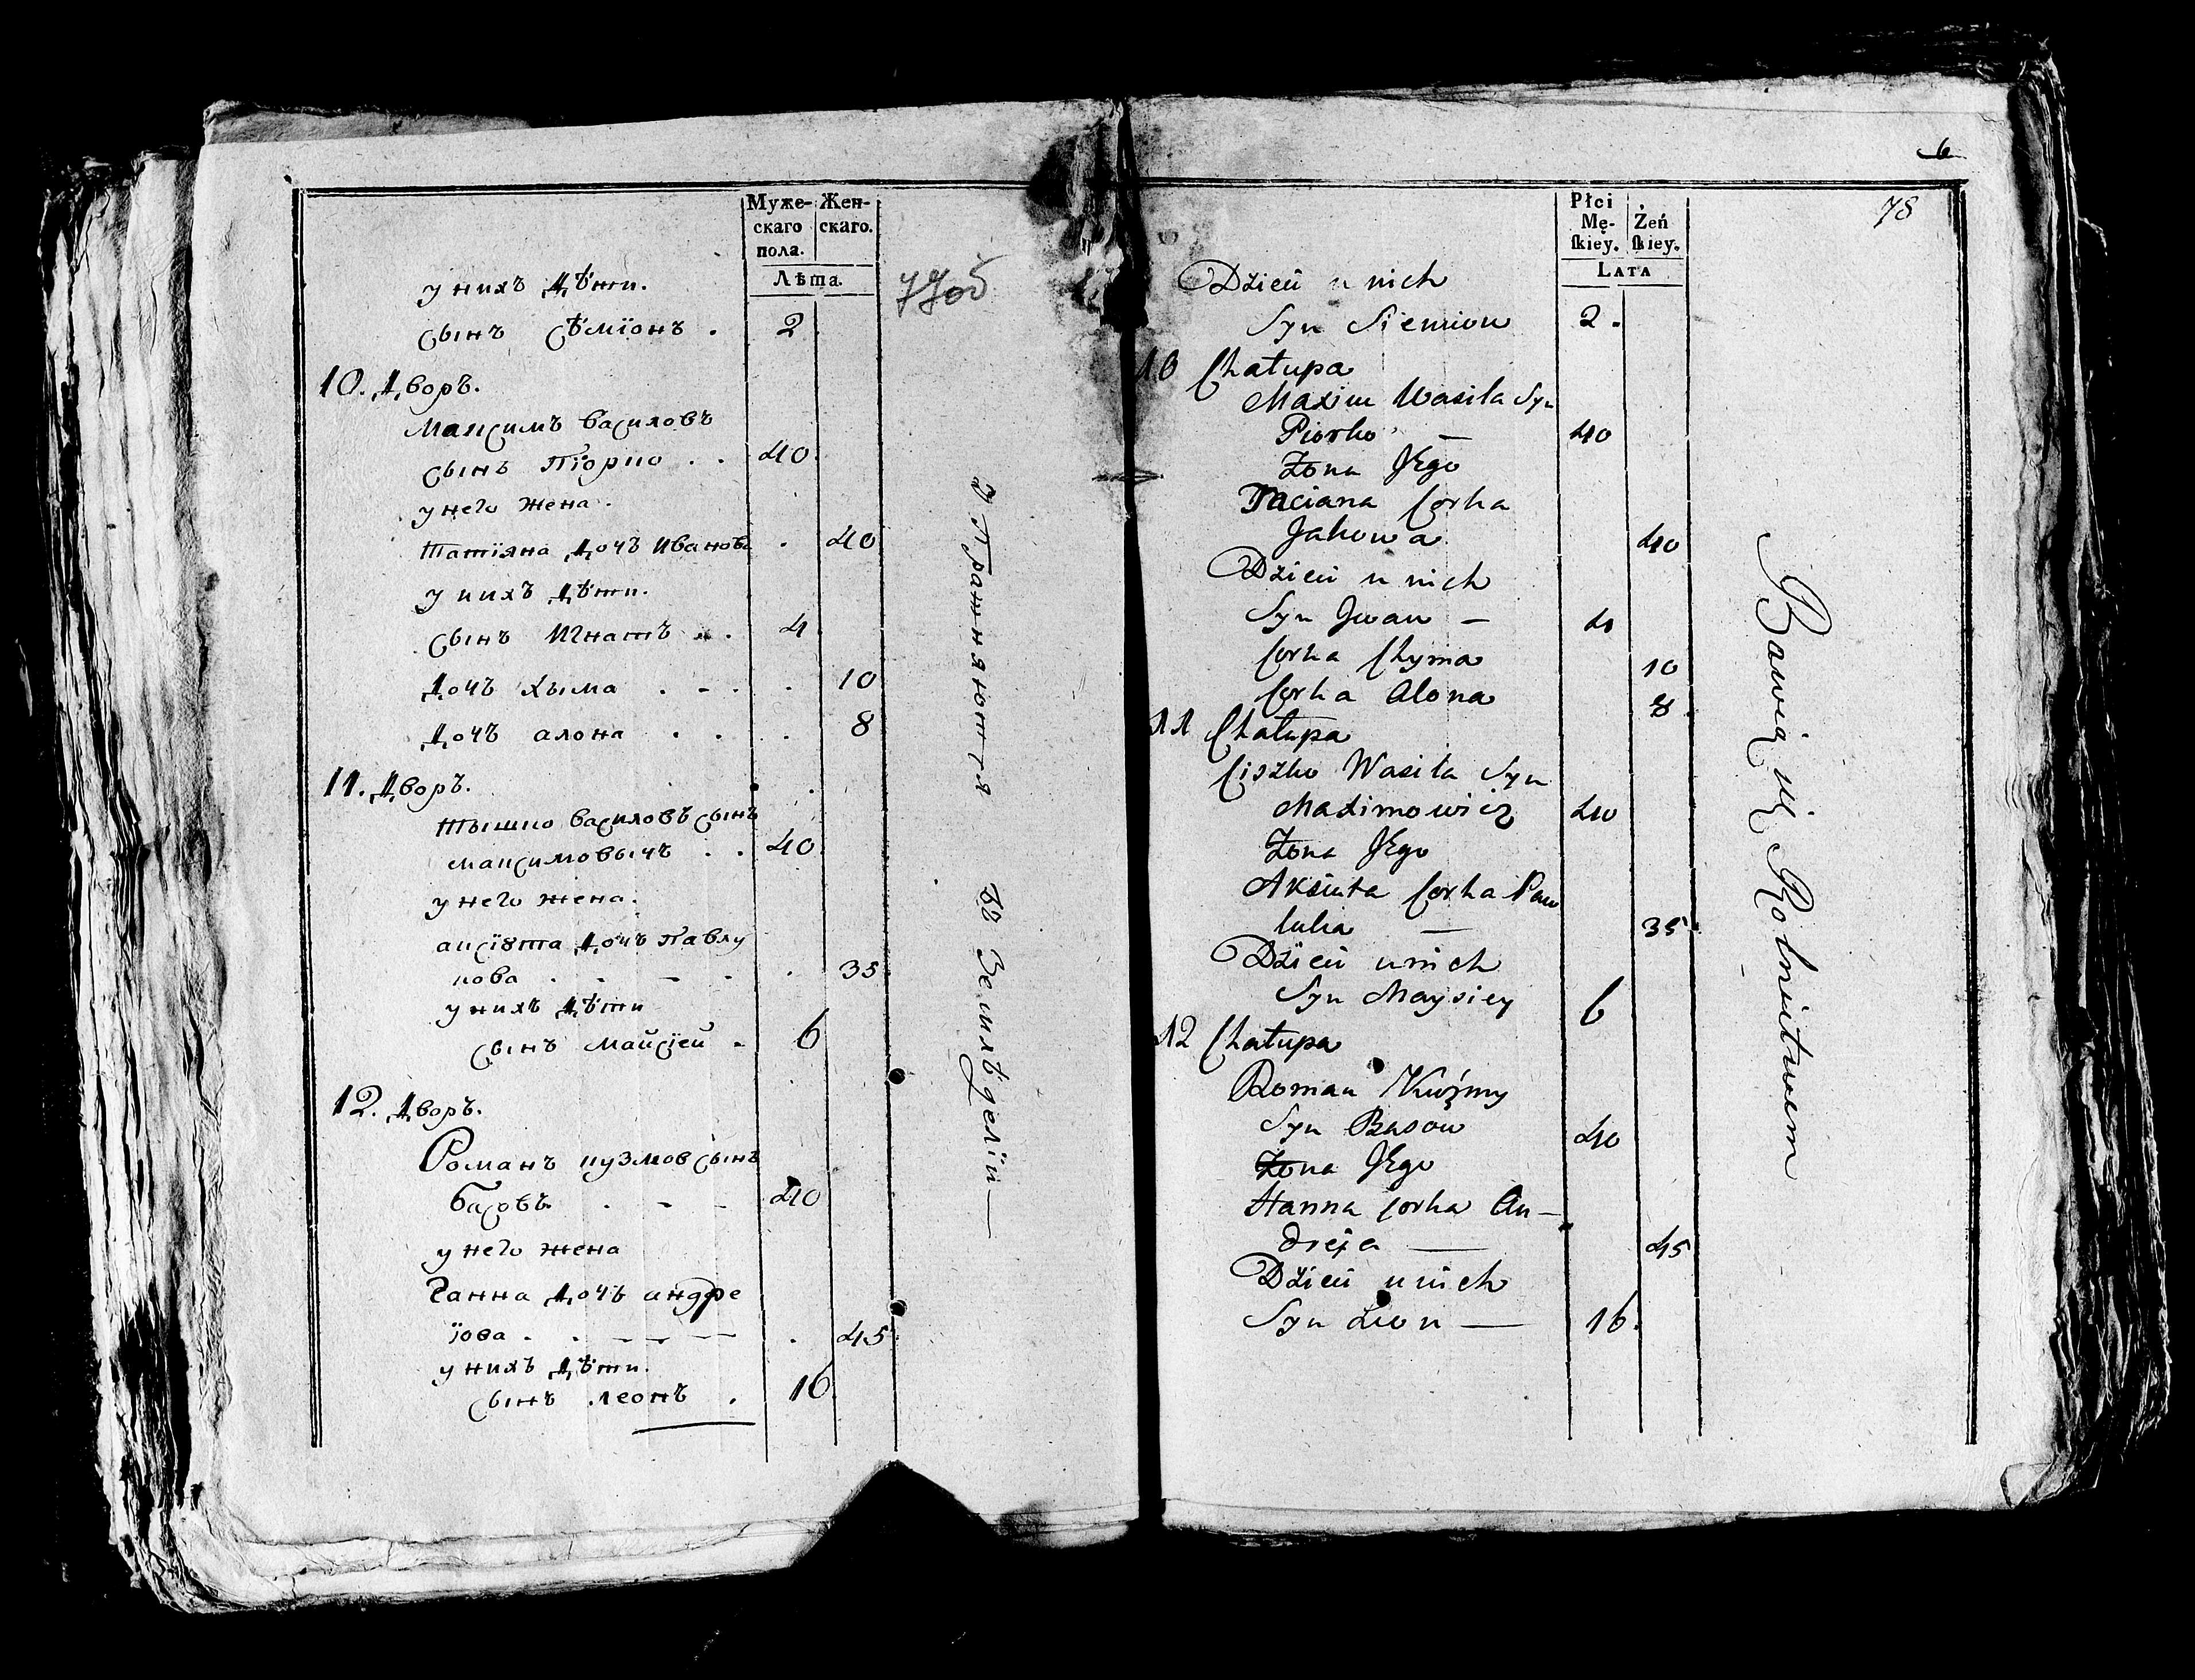 Муже-
скаго
пола.
Жен-
скаго.
Лѣта.
у нихъ дѣти.
сынъ сѣмїонъ . 2
10. дворъ.
Максимъ василовъ
сынъ Пїорко . . 40.
у него жена.
татїяна дочъ иванова . 40
у нихъ дѣти.
сынъ игнатъ . . 4
дочъ хыма . - . . 10
дочъ алона . . . 8
11. дворъ.
тышко василовъ сынъ
максимовычъ . . 40
у него жена.
аксїюта дочъ павлу
кова . - - - . 35
у нихъ дѣти
сынъ майсїей - 6
12. дворъ.
Романъ кузмов сынъ
басовъ . - - 40
у него жена
ганна дочъ андре
їова . . - - — . 45
у нихъ дѣти.
сынъ леонъ . 16
77об
Упражняются въ Земледѣлїи—
6
78
Płci
Mę-
skiey.
Żeń
skiey.
LATA
Dzieci u nich
Syn Siemion 2.
10 Chałupa
Maxim Wasila Syn
Piorko — 40
Żona Jego
Taciana Corka
Jakowa 40
Dzieci u nich
Syn Jwan — 4
Corka Chyma 10
Corka Alona 8
11 Chałupa
Ciszko Wasila Syn
Maximowicz 40
Żona Jego
Aksiuta Corka Paw
luka — 35
Dzieci u nich
Syn Maysiey 6
12 Chałupa
Roman Kuźmy
Syn Basow 40
Żona Jego
Hanna corka An—
dreja — 45
Dzieci u nich
Syn Leon — 16.
Bawią się Rolnictwem